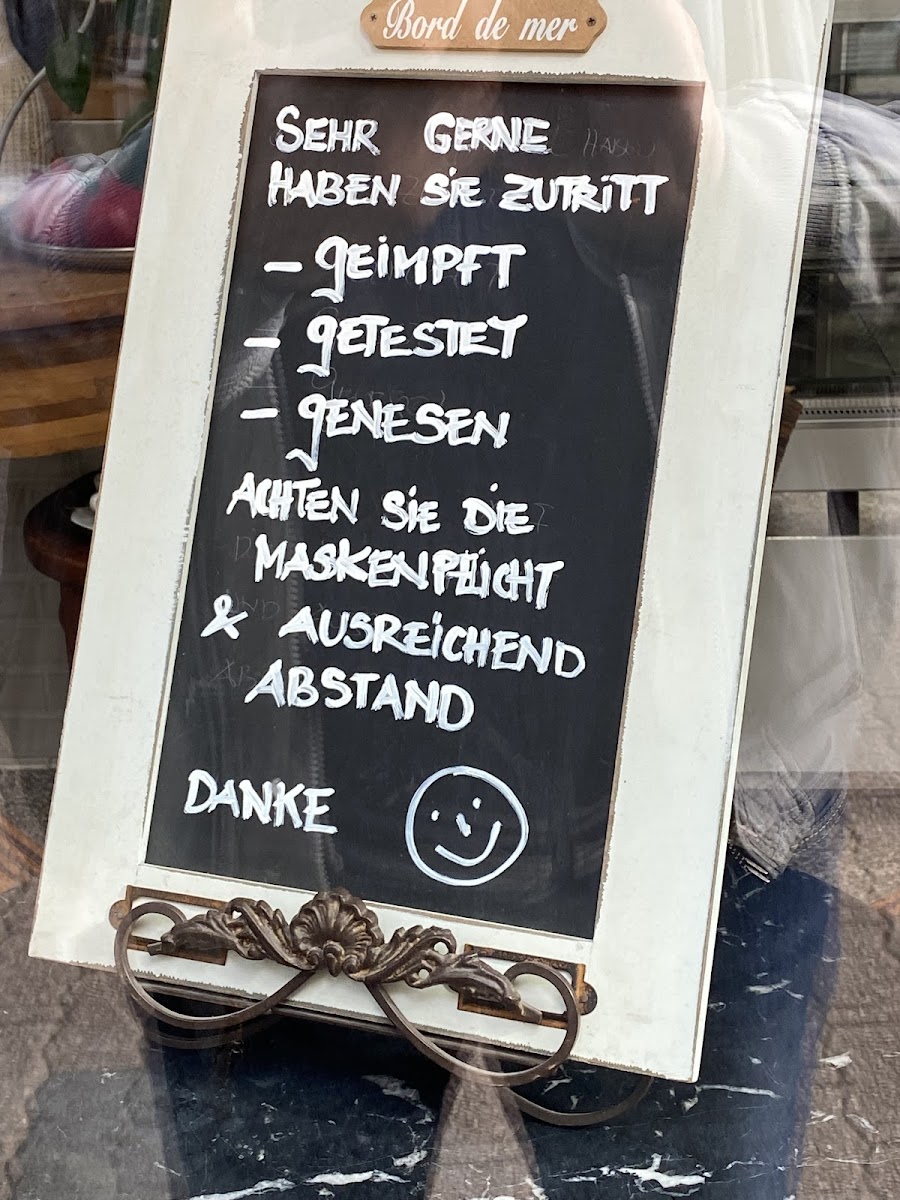 Bord de mer
SEHR GERNE
HABEN SiE ZUTRiTT
- gEiMPFT
- gETESTET
- gENESEN
ACHTEN SiE DiE
MASKENPFLiCHT
& AUSREiCHEND
ABSTAND
DANKE